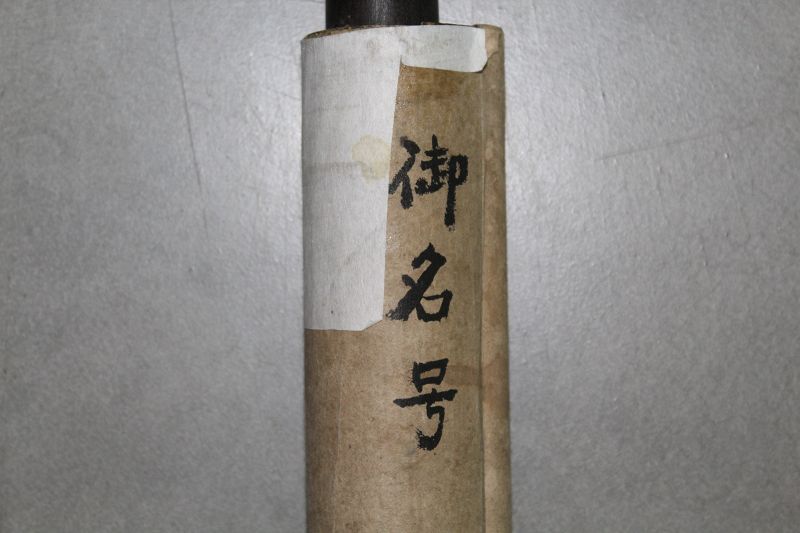 御名号